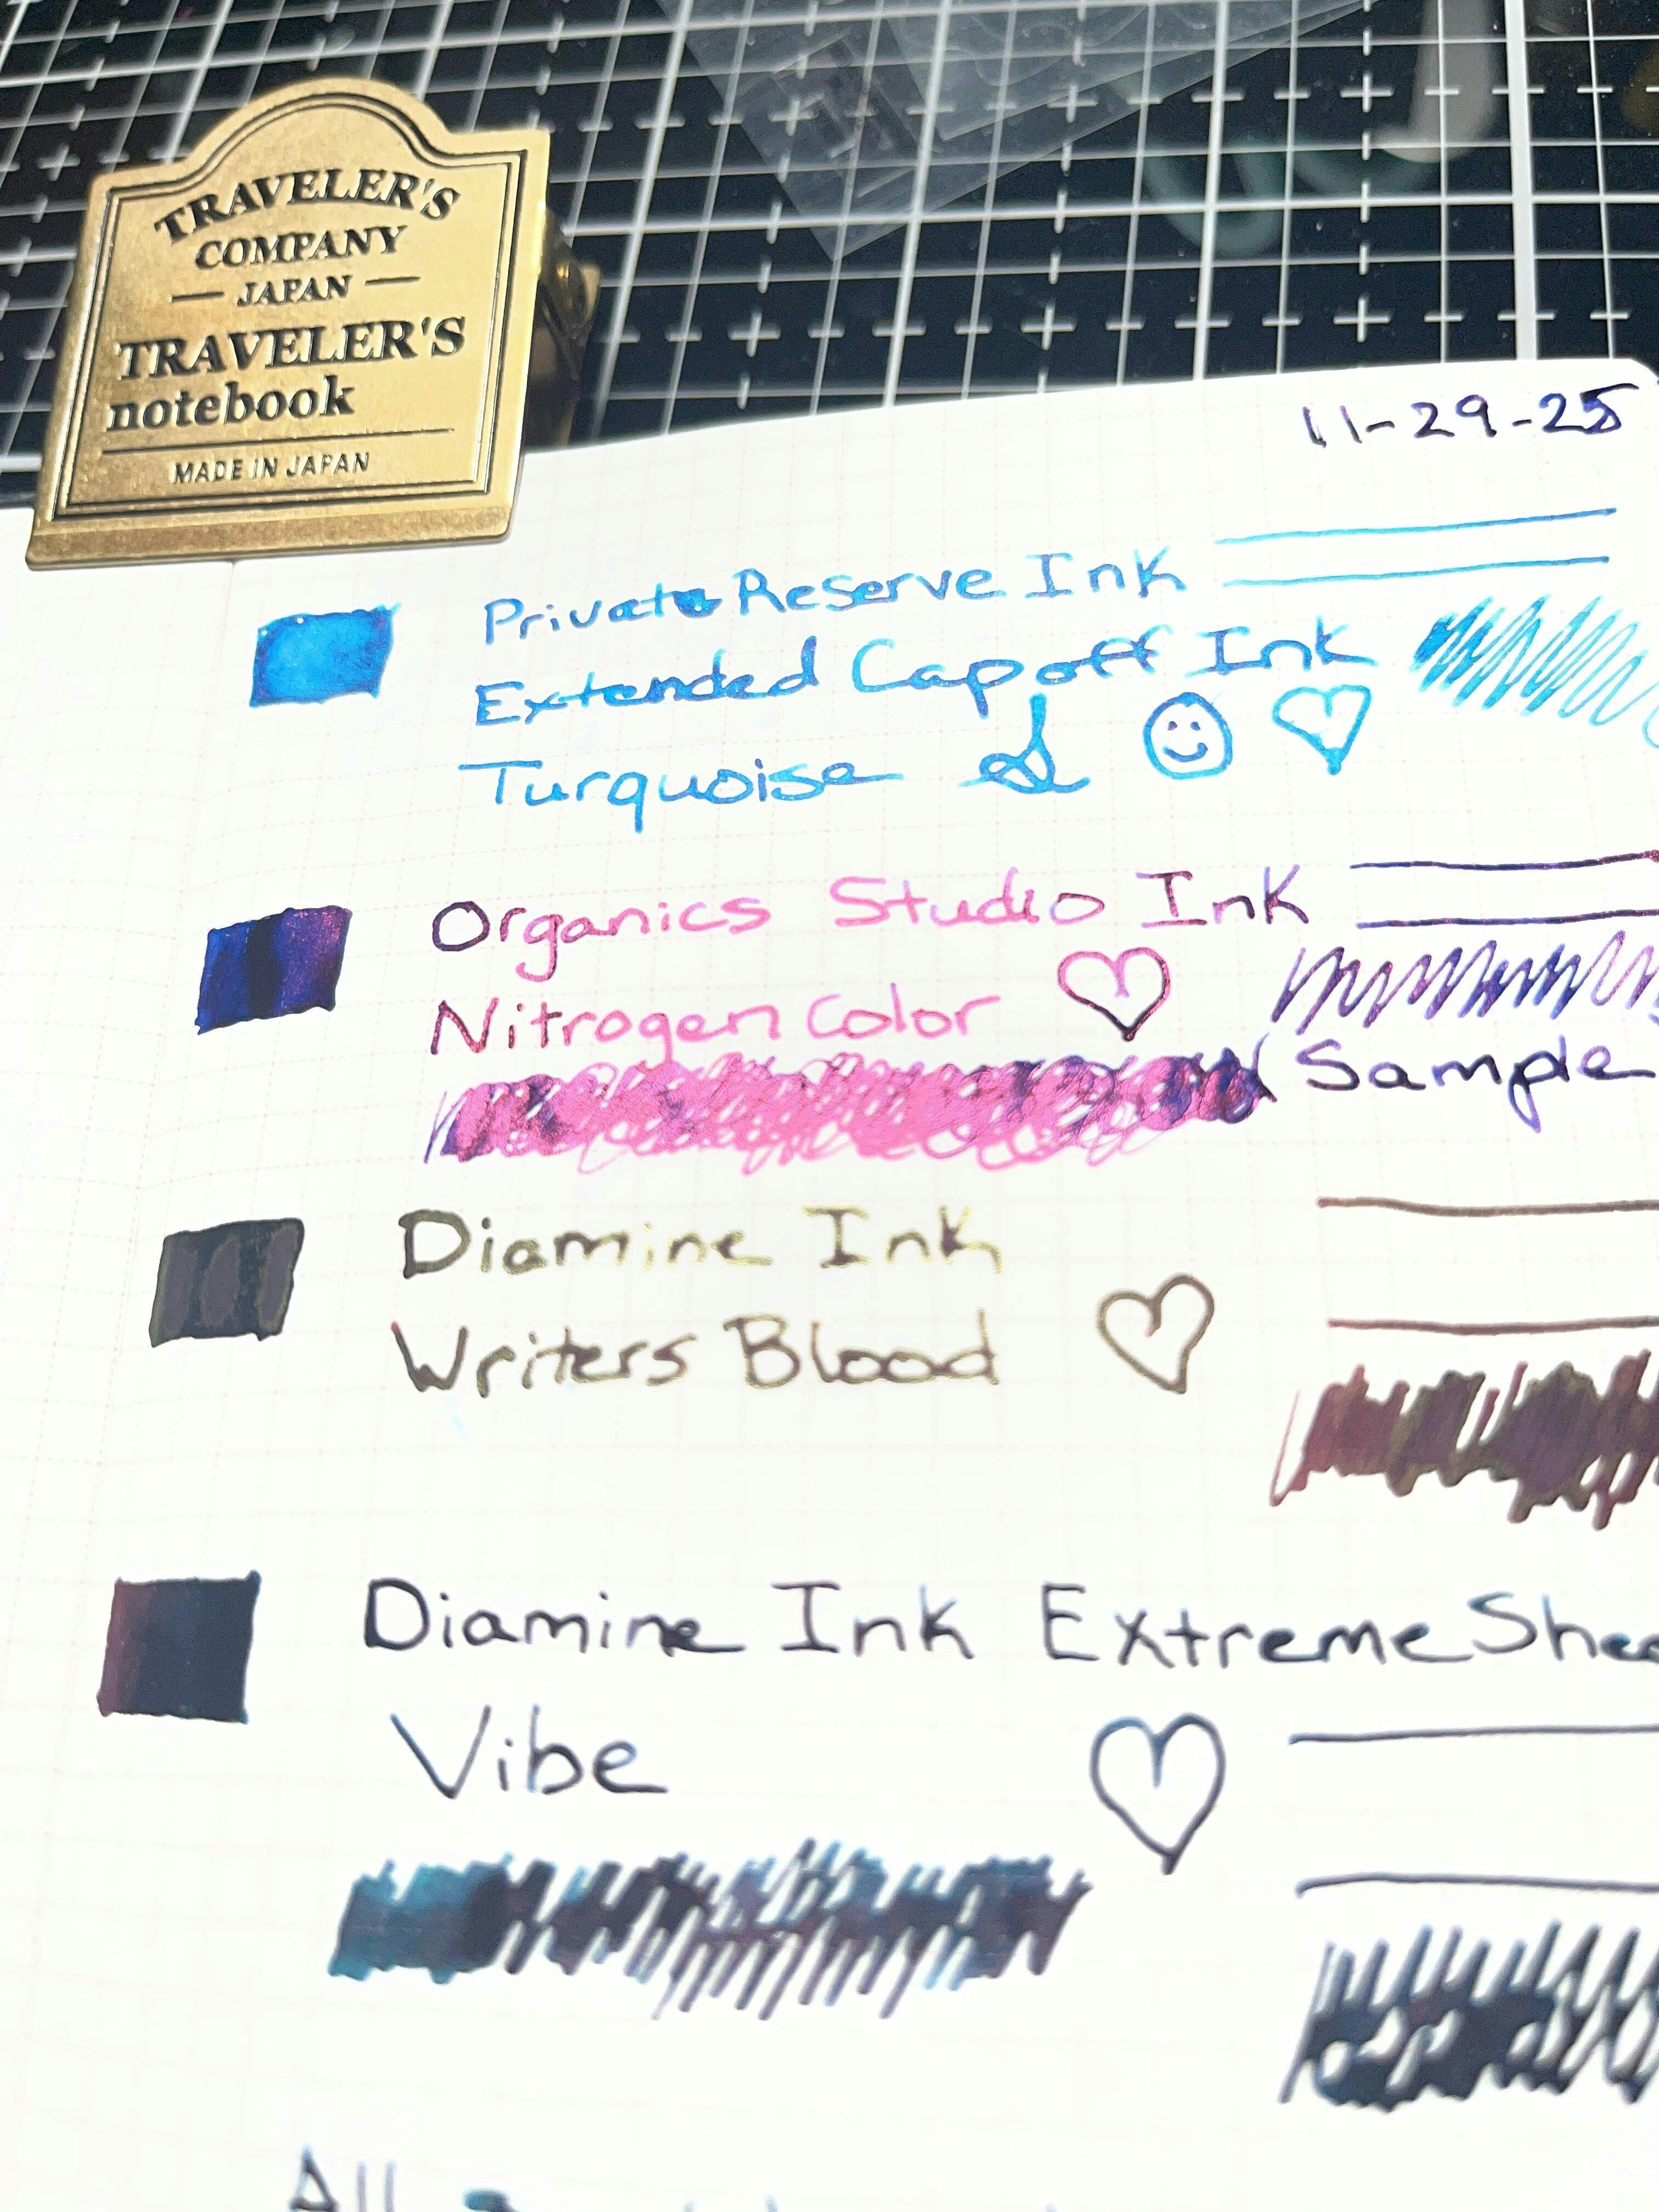 TRAVELER'S
COMPANY
JAPAN
TRAVELER'S
notebook
MADE IN JAPAN
11-29-25
Private Reserve Ink
Extended Cap off Ink
Turquoise
Organics Studio Ink
Nitrogen Color
Sample
Diamine Ink
Writers Blood
Diamine Ink Extreme
Vibe
All